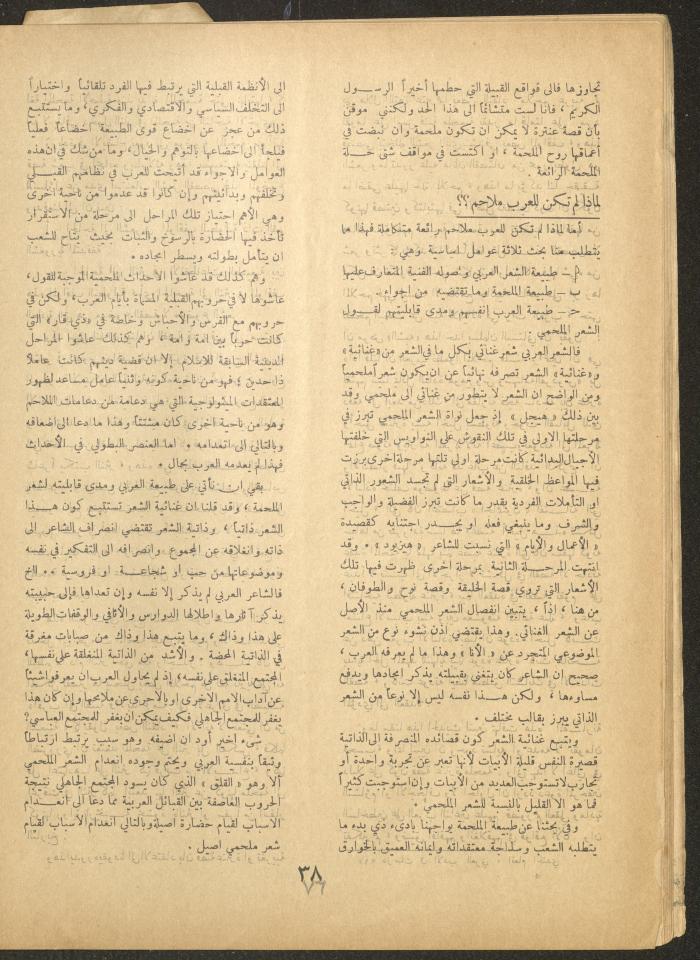 تجاوزها فالى قواقع القبيلة التي حطمها أخيراً الرسول
الكريم ، فانا لست متشائماً الى هذا الحد ولكنني موقن
بأن قصة عنترة لا يمكن ان تكون ملحمة وان نبضت في
أعماقها روح الملحمة ، او اكتست في مواقف شتى حلة
الملحمة الرائعة .
لماذا لم تكن للعرب ملاحم ؟؟
أما لماذا لم تكن للعرب ملاحم رائعة متكاملة فهذا ما
يتطلب منا بحث ثلاثة عوامل اساسية وهي :
أ – طبيعة الشعر العربي واصوله الفنية المتعارف عليها
ب – طبيعة الملحمة وما تقتضيه من اجواء .
ح – طبيعة العرب انفسهم ومدى قابليتهم لقبول
الشعر الملحمي
فالشعر العربي شعر غنائي بكل ما في الشعر من «غنائية»
و«غنائية» الشعر تصرفه نهائياً عن ان يكون شعراً ملحمياً
ومن الواضح ان الشعر لا يتطور من غنائي الى ملحمي وقد
بين ذلك « هيجل » إذ جعل نواة الشعر الملحمي تبرز في
مرحلتها الاولى في تلك النقوش على النواويس التي خلفتها
الأجيال البدائية كانت مرحلة اولى تلتها مرحلة اخرى برزت
فيها المواعظ الخلقية والأشعار التي لم تجسد الشعور الذاتي
او التأملات الفردية بقدر ما كانت تبرز الفضيلة والواجب
والشرف وما ينبغي فعله او يجدر اجتنابه كقصيدة
« الأعمال والأيام » التي نسبت للشاعر « هزيود » . وقد
انتهت المرحلة الثانية بمرحلة اخرى ظهرت فيها تلك
الأشعار التي تروي قصة الخليقة وقصة نوح والطوفان ،
من هنا ، إذاً ، يتبين انفصال الشعر الملحمي منذ الأصل
عن الشعر الغنائي . وهذا يقتضي اذن نشوء نوع من الشعر
الموضوعي المتجرد عن « الأنا » وهذا ما لم يعرفه العرب ،
صحيح ان الشاعر كان يتغنى بقبيلته يذكر امجادها ويدفع
مساوءها ، ولكن هذا نفسه ليس إلا نوعاً من الشعر
الذاتي يبرز بقالب مختلف .
ويتبع غنائية الشعر كون قصائده المنصرفة الى الذاتية
قصيرة النفس قليلة الأبيات لأنها تعبر عن تجربة واحدة أو
تجارب لا تستوجب العديد من الأبيات وإن استوجبت كثيراً
فما هو الا القليل بالنسبة للشعر الملحمي .
وفي بحثنا عن طبيعة الملحمة يواجهنا بادىء ذي بدء ما
يتطلبه الشعب وسذاجة معتقداته وايمانه العميق بالخوارق
الى الأنظمة القبلية التي يرتبط فيها الفرد تلقائياً واختياراً
الى التخلف السياسي والاقتصادي والفكري ، وما يستتبع
ذلك من عجز عن اخضاع قوى الطبيعة اخضاعاً فعلياً
فيلجأ الى اخضاعها بالتوهم والخيال ، وما من شك في ان هذه
العوامل والاجواء قد أتيحت للعرب في نظامهم القبلي
وتخلفهم وبدائيتهم وإن كانوا قد عدموا من ناحية اخرى
وهي الأهم اجتياز تلك المراحل الى مرحلة من الاستقرار
تأخذ فيها الحضارة بالرسوخ والثبات بحيث يتاح للشعب
ان يتأمل بطولته ويسطر امجاده .
وهم كذلك قد عاشوا الأحداث الملحمية الموجبة للقول ،
عاشوها لا في حروبهم القبلية المسماة بأيام العرب ، ولكن في
حروبهم مع الفرس والأحباش وخاصة في «ذي قار» التي
كانت حرباً بين امة وامة ، وهم كذلك عاشوا المراحل
الدينية السابقة للاسلام إلا ان قضية دينهم كانت عاملاً
ذا حدين ؛ فهو من ناحية كونه وثنياً عامل مساعد لظهور
المعتقدات الميثولوجية التي هي دعامة من دعامات الملاحم
وهو من ناحية اخرى كان مشتتاً وهذا ما دعا الى اضعافه
وبالتالي الى انعدامه . اما العنصر البطولي في الأحداث
فهذا لم يعدمه العرب بحال .
بقي ان نأتي على طبيعة العربي ومدى قابليته لشعر
الملحمة ، وقد قلنا ان غنائية الشعر تستتبع كون هذا
الشعر ذاتياً ، وذاتية الشعر تقتضي انصراف الشاعر الى
ذاته وانغلاقه عن المجموع وانصرافه الى التفكير في نفسه
وموضوعاتها من حب او شجاعة او فروسية . . الخ
فالشاعر العربي لم يذكر إلا نفسه وإن تعداها فإلى حبيبته
يذكر آثارها واطلالها الدوارس والأثافي والوقفات الطويلة
على هذا وذاك ، وما يتبع هذا وذاك من صبابات مغرقة
في الذاتية المحضة . والأشد من الذاتية المنغلقة على نفسها ،
المجتمع المنغلق على نفسه ؛ إذ لم يحاول العرب ان يعرفوا شيئاً
عن آداب الامم الاخرى او بالأحرى عن ملاحمها وإن كان هذا
يغفر للمجتمع الجاهلي فكيف يمكن ان يغفر للمجتمع العباسي ؟
شيء اخير أود ان اضيفه وهو سبب يرتبط ارتباطاً
وثيقاً بنفسية العربي ويحتم وجوده إنعدام الشعر الملحمي
ألا وهو « القلق » الذي كان يسود المجتمع الجاهلي نتيجة
الحروب العاصفة بين القبائل العربية مما دعا الى انعدام
الاسباب لقيام حضارة اصيلة وبالتالي انعدام الأسباب لقيام
شعر ملحمي اصيل .
٣٨